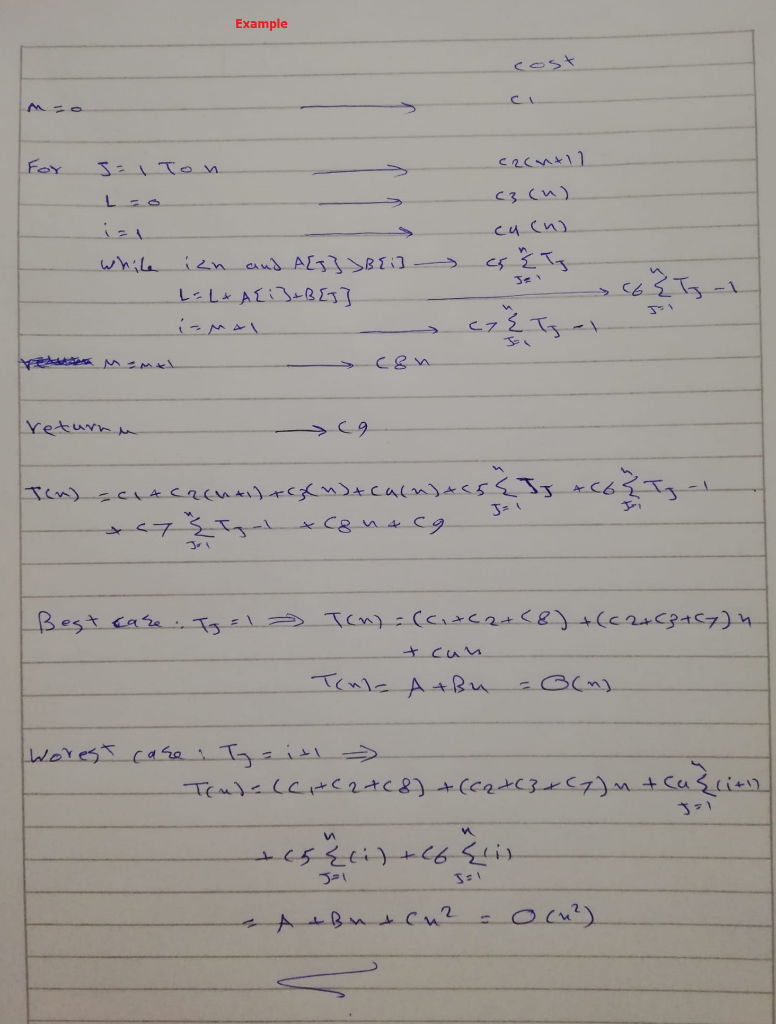 Example
cost
m=0 → c1
For J=1 To n → c2(n+1)
L=0 → c3(n)
i=1 → c4(n)
while i<n and A[J]>B[i] → c5 n∑J=1 TJ
L=L+A[i]+B[J] → c6 n∑J=1 TJ-1
i=m+1 → c7 n∑J=1 TJ-1
m=m+1 → c8n
return m → c9
T(n) = c1+c2(n+1)+c3(n)+c4(n)+c5 n∑J=1 TJ +c6 n∑J=1 TJ-1
+c7 n∑J=1 TJ-1 +c8n+c9
Best case: TJ=1 ⇒ T(n)=(c1+c2+c8)+(c2+c3+c7)n
+c4n
T(n)= A+Bn = O(n)
Worest case: TJ=i+1 ⇒
T(n)=(c1+c2+c8)+(c2+c3+c7)n+c4 n∑J=1 (i+1)
+c5 n∑J=1 (i)+c6 n∑J=1 (i)
= A+Bn+Cn² = O(n²)